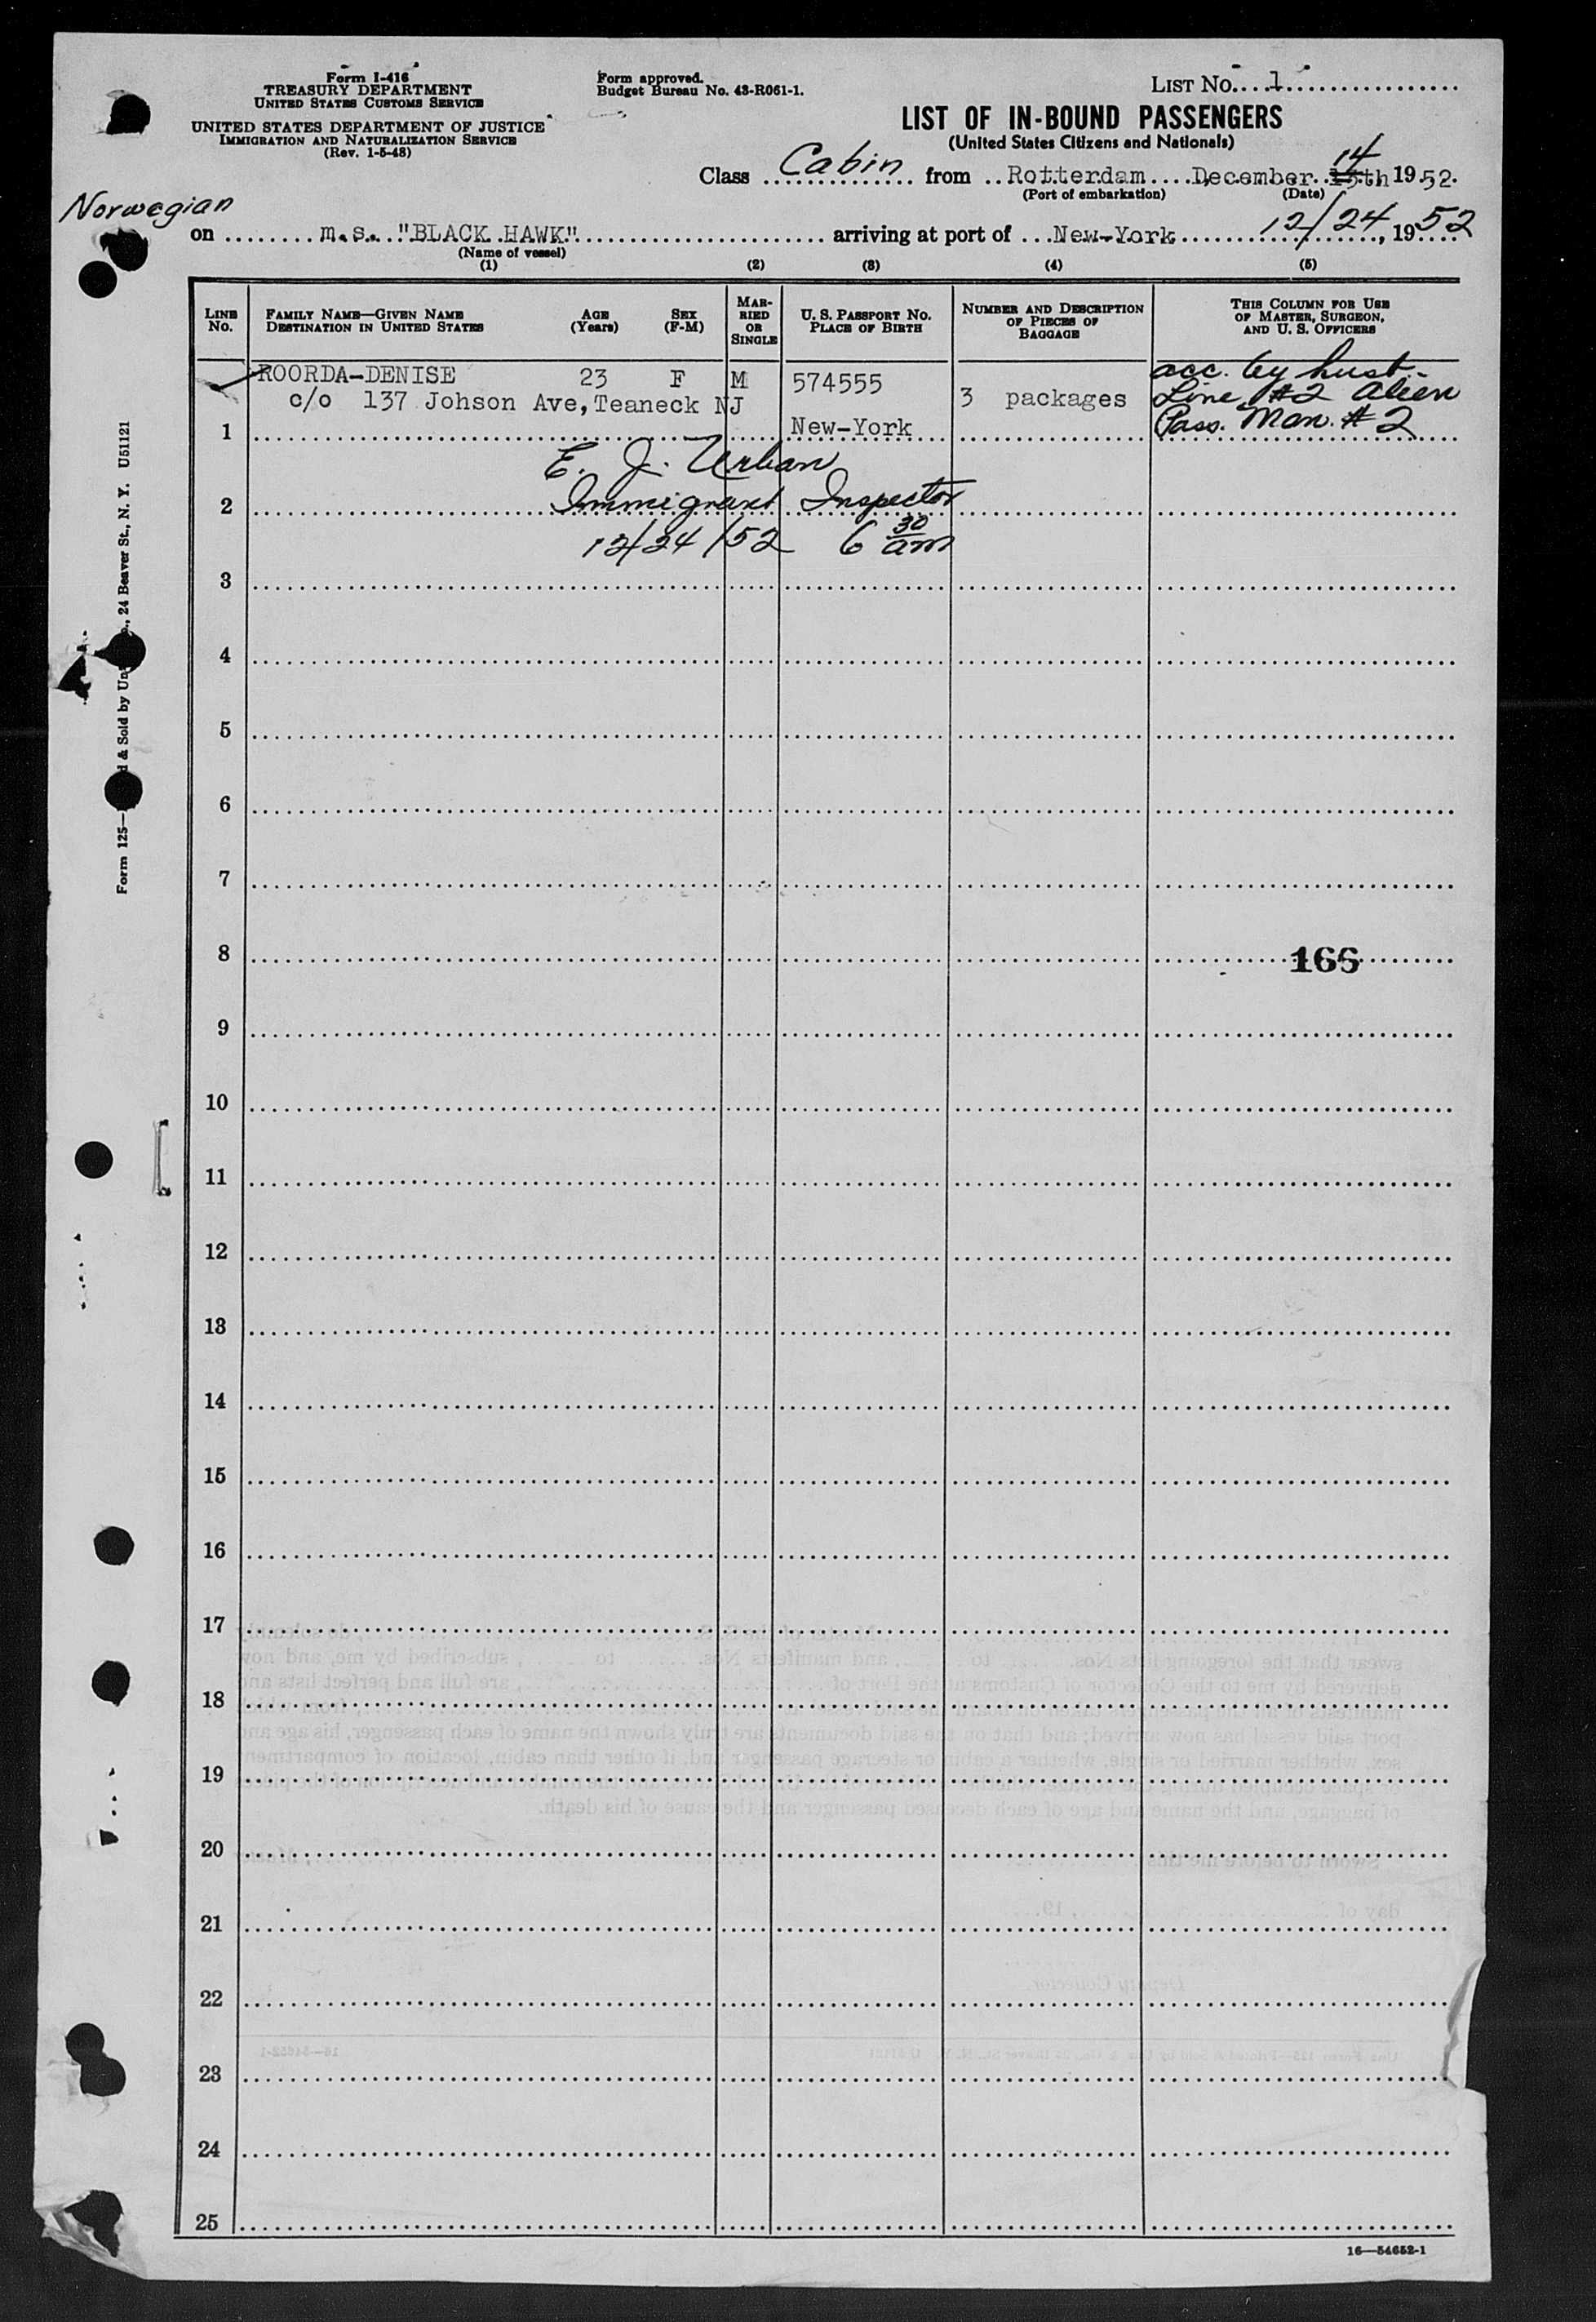 Form I-416
TREASURY DEPARTMENT
UNITED STATES CUSTOMS SERVICE
UNITED STATES DEPARTMENT OF JUSTICE
IMMIGRATION AND NATURALIZATION SERVICE
(Rev. 1-5-48)
Form approved.
Budget Bureau No. 43-R061-1.
LIST No. 1
LIST OF IN-BOUND PASSENGERS
(United States Citizens and Nationals)
14
Class Cabin from Rotterdam December 15th 1952.
(Port of embarkation) (Date)
Norwegian
on m.s. "BLACK HAWK" arriving at port of New-York 12/24, 1952
(Name of vessel)
(1) (2) (3) (4) (5)
LINE No. FAMILY NAME—GIVEN NAME DESTINATION IN UNITED STATES AGE (Years) SEX (F-M) MARRIED OR SINGLE U. S. PASSPORT No. PLACE OF BIRTH NUMBER AND DESCRIPTION OF PIECES OF BAGGAGE THIS COLUMN FOR USE OF MASTER, SURGEON, AND U. S. OFFICERS
ROORDA-DENISE 23 F M 574555 acc. by husb.
c/o 137 Johson Ave, Teaneck NJ 3 packages Line #2 Alien
1 New-York Pass. Man. #2
E. J. Urban
2 Immigrant Inspector
12/24/52 6 30 am
3
4
5
6
7
8 166
9
10
11
12
13
14
15
16
17
18
19
20
21
22
23
24
25
16—54652-1
Form 125— d & Sold by Un , 24 Beaver St., N. Y. U51121